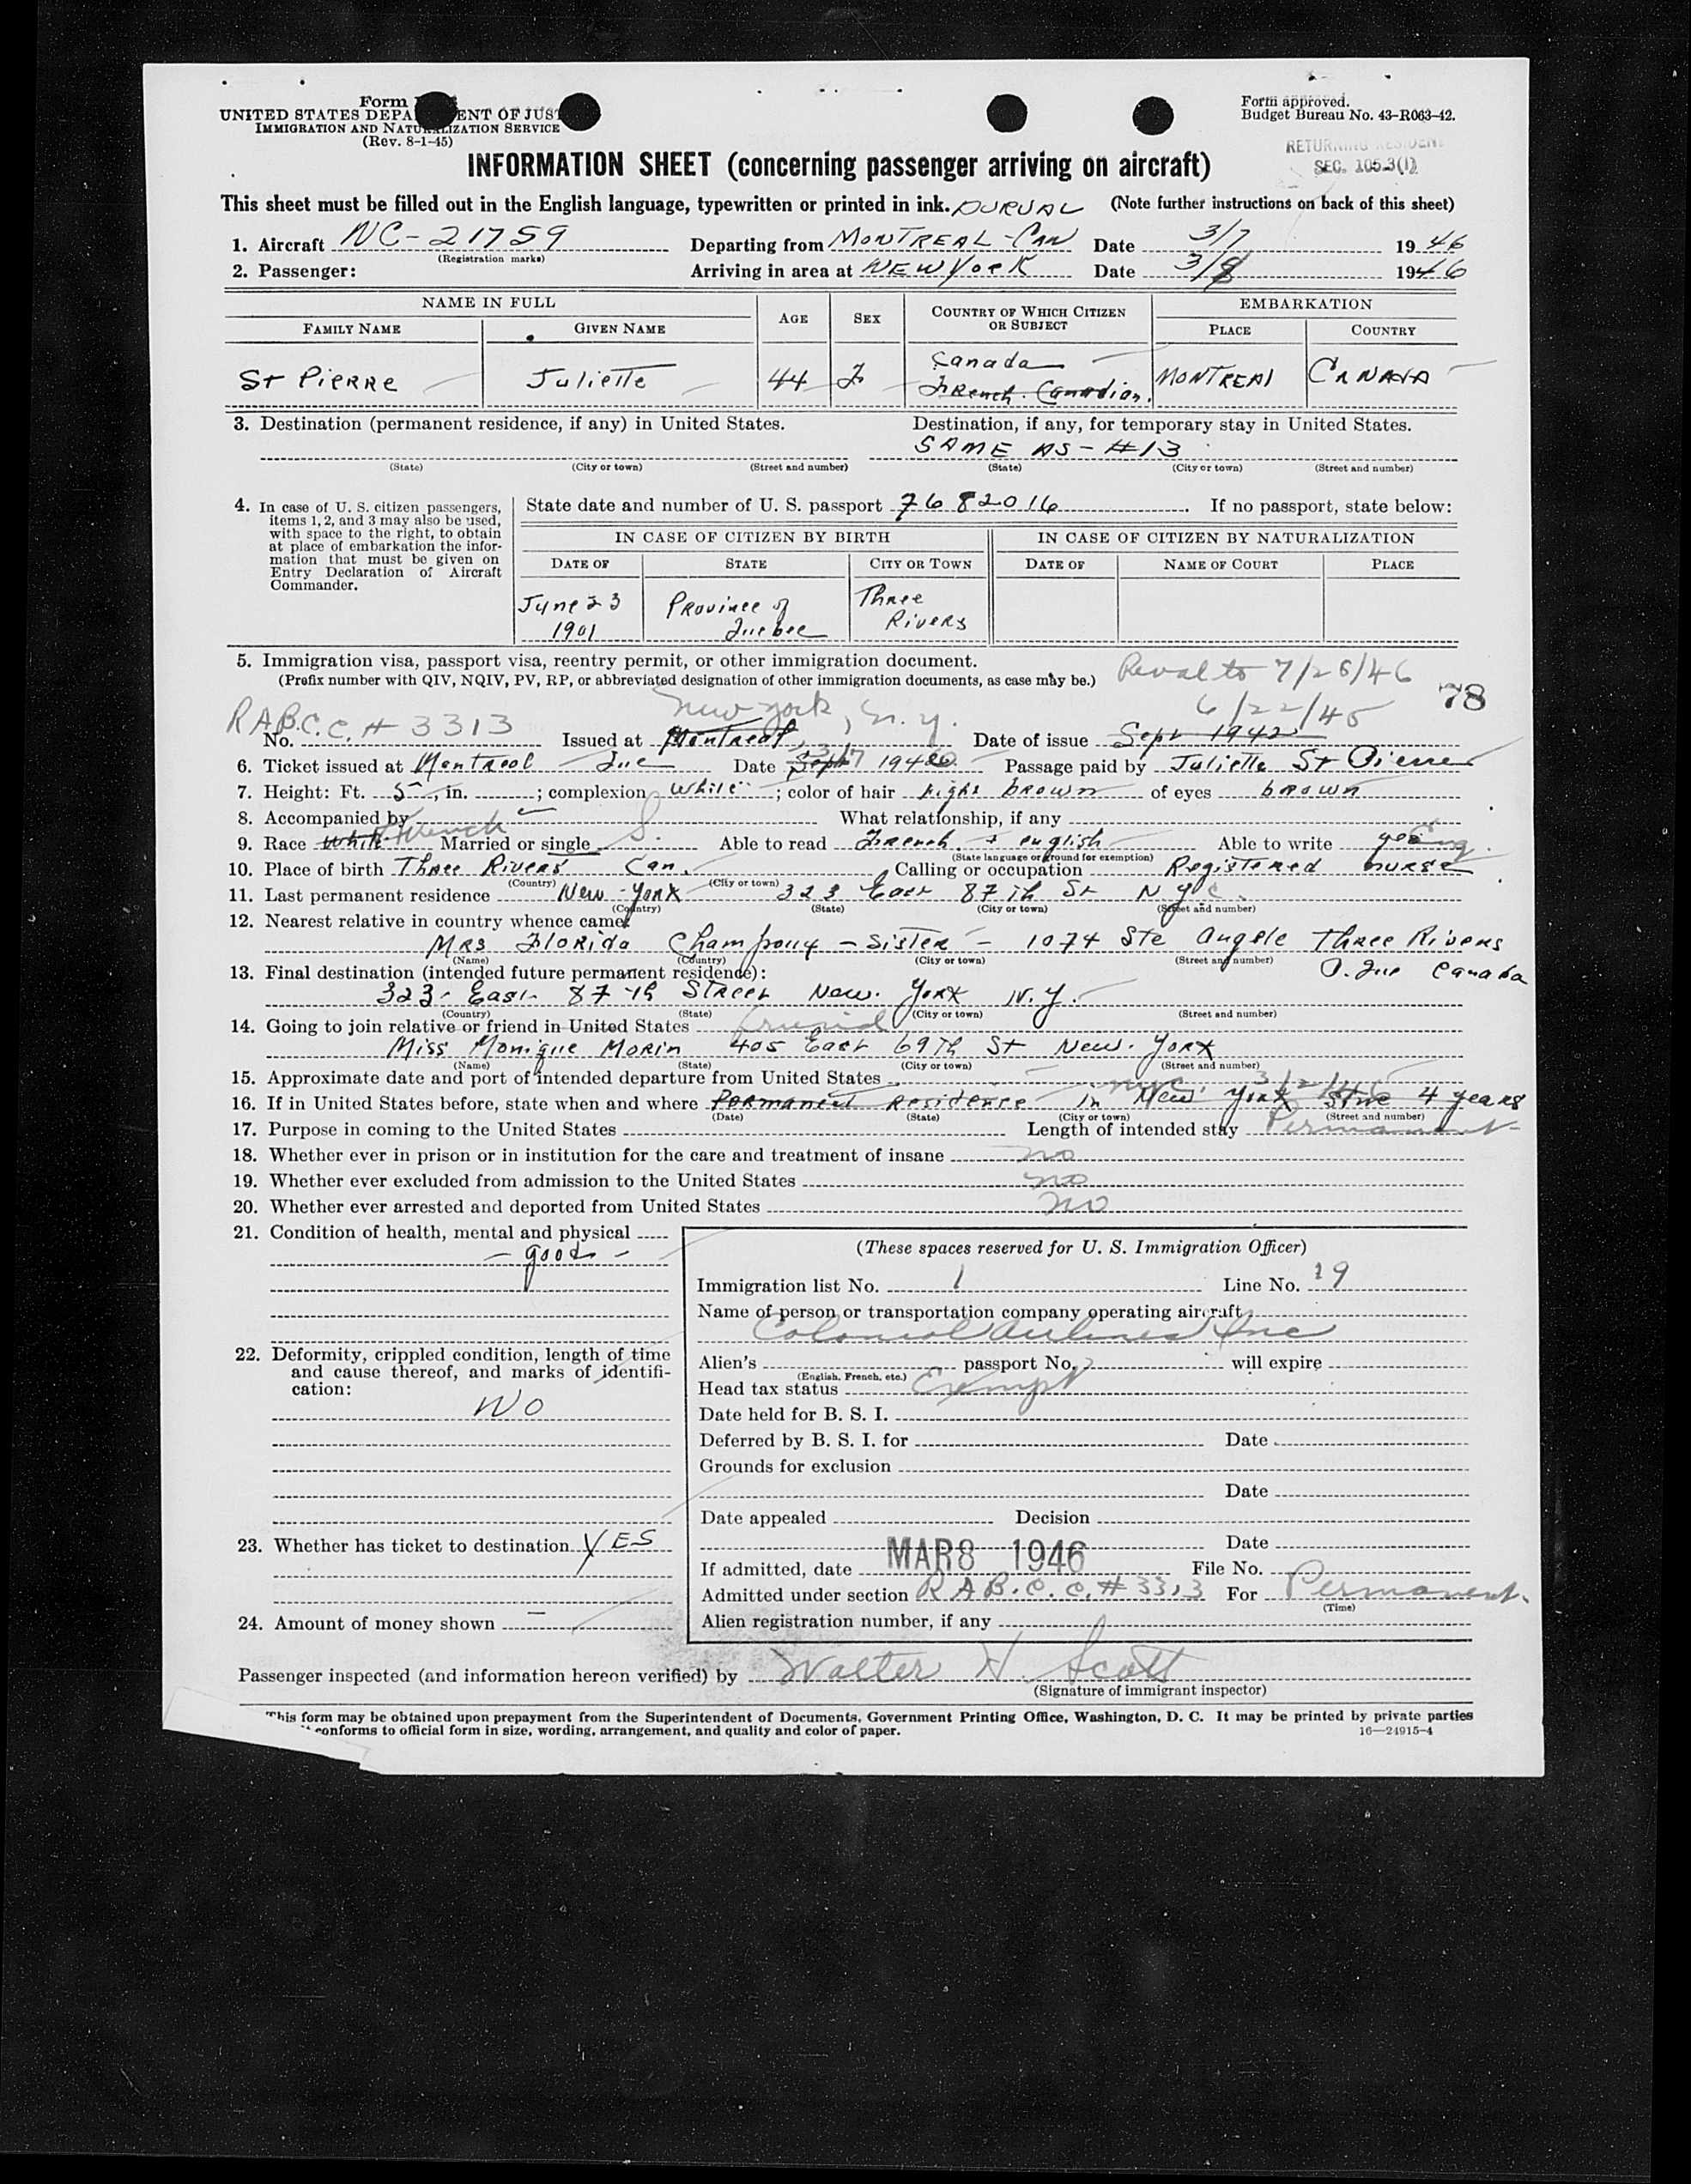 Form
UNITED STATES DEPA ENT OF JUS
IMMIGRATION AND NATURALIZATION SERVICE
(Rev. 8-1-45)
Form approved.
Budget Bureau No. 43-R063-42.
RETURNING RESIDENT
SEC. 105.3(1)
INFORMATION SHEET (concerning passenger arriving on aircraft)
This sheet must be filled out in the English language, typewritten or printed in ink. (Note further instructions on back of this sheet)
1. Aircraft NC-21759 Departing from MONTREAL-CAN Date 3/7 1946
(Registration marks)
2. Passenger: Arriving in area at NEW YORK Date 3/8 1946
NAME IN FULL AGE SEX COUNTRY OF WHICH CITIZEN OR SUBJECT EMBARKATION
FAMILY NAME GIVEN NAME PLACE COUNTRY
Canada
St PIERRE Juliette 44 F French Canadian. MONTREAL CANADA
3. Destination (permanent residence, if any) in United States. Destination, if any, for temporary stay in United States.
SAME AS - #13
(State) (City or town) (Street and number) (State) (City or town) (Street and number)
4. In case of U. S. citizen passengers, items 1, 2, and 3 may also be used, with space to the right, to obtain at place of embarkation the information that must be given on Entry Declaration of Aircraft Commander.
State date and number of U. S. passport 7682016 If no passport, state below:
IN CASE OF CITIZEN BY BIRTH IN CASE OF CITIZEN BY NATURALIZATION
DATE OF STATE CITY OR TOWN DATE OF NAME OF COURT PLACE
June 23 Province of Three
1901 Quebec Rivers
5. Immigration visa, passport visa, reentry permit, or other immigration document.
(Prefix number with QIV, NQIV, PV, RP, or abbreviated designation of other immigration documents, as case may be.)
Reval to 7/28/46
78
New York, N.Y. 6/22/45
No. R.A.B.C.C. # 3313 Issued at Montreal Date of issue Sept 1942
6. Ticket issued at Montreal Que Date Sept 3/7 1946 Passage paid by Juliette St Pierre
7. Height: Ft. 5, in. ; complexion white ; color of hair light brown of eyes brown
8. Accompanied by What relationship, if any
9. Race White French Married or single S. Able to read French + english Able to write yes Eng.
(State language or ground for exemption)
10. Place of birth Three Rivers Can. Calling or occupation Registered nurse
(Country) (City or town)
11. Last permanent residence New-York 323 East 87th St N.Y.C.
(Country) (State) (City or town) (Street and number)
12. Nearest relative in country whence came:
Mrs Florida Champoux - Sister - 1074 Ste Angele Three Rivers
(Name) (Country) (City or town) (Street and number)
P. Que Canada
13. Final destination (intended future permanent residence):
323- East- 87th Street New. York N.Y.
(Country) (State) (City or town) (Street and number)
14. Going to join relative or friend in United States friend
Miss Monique Morin 405 East 69th St New. York
(Name) (State) (City or town) (Street and number)
15. Approximate date and port of intended departure from United States
NYC. 3/2/46
16. If in United States before, state when and where Permanent Residence in New York since 4 years
(Date) (State) (City or town) (Street and number)
17. Purpose in coming to the United States Length of intended stay Permanent
18. Whether ever in prison or in institution for the care and treatment of insane no
19. Whether ever excluded from admission to the United States no
20. Whether ever arrested and deported from United States no
21. Condition of health, mental and physical
- good -
22. Deformity, crippled condition, length of time and cause thereof, and marks of identification:
NO
23. Whether has ticket to destination YES
24. Amount of money shown —
(These spaces reserved for U. S. Immigration Officer)
Immigration list No. 1 Line No. 19
Name of person or transportation company operating aircraft
Colonial Airlines Inc
Alien's passport No. will expire
(English, French, etc.)
Head tax status Exempt
Date held for B. S. I.
Deferred by B. S. I. for Date
Grounds for exclusion
Date
Date appealed Decision
Date
If admitted, date MAR 8 1946 File No.
Admitted under section R.A.B.C.C. # 3313 For Permanent.
(Time)
Alien registration number, if any
Passenger inspected (and information hereon verified) by Walter H. Scott
(Signature of immigrant inspector)
This form may be obtained upon prepayment from the Superintendent of Documents, Government Printing Office, Washington, D. C. It may be printed by private parties
conforms to official form in size, wording, arrangement, and quality and color of paper.
16—24915-4